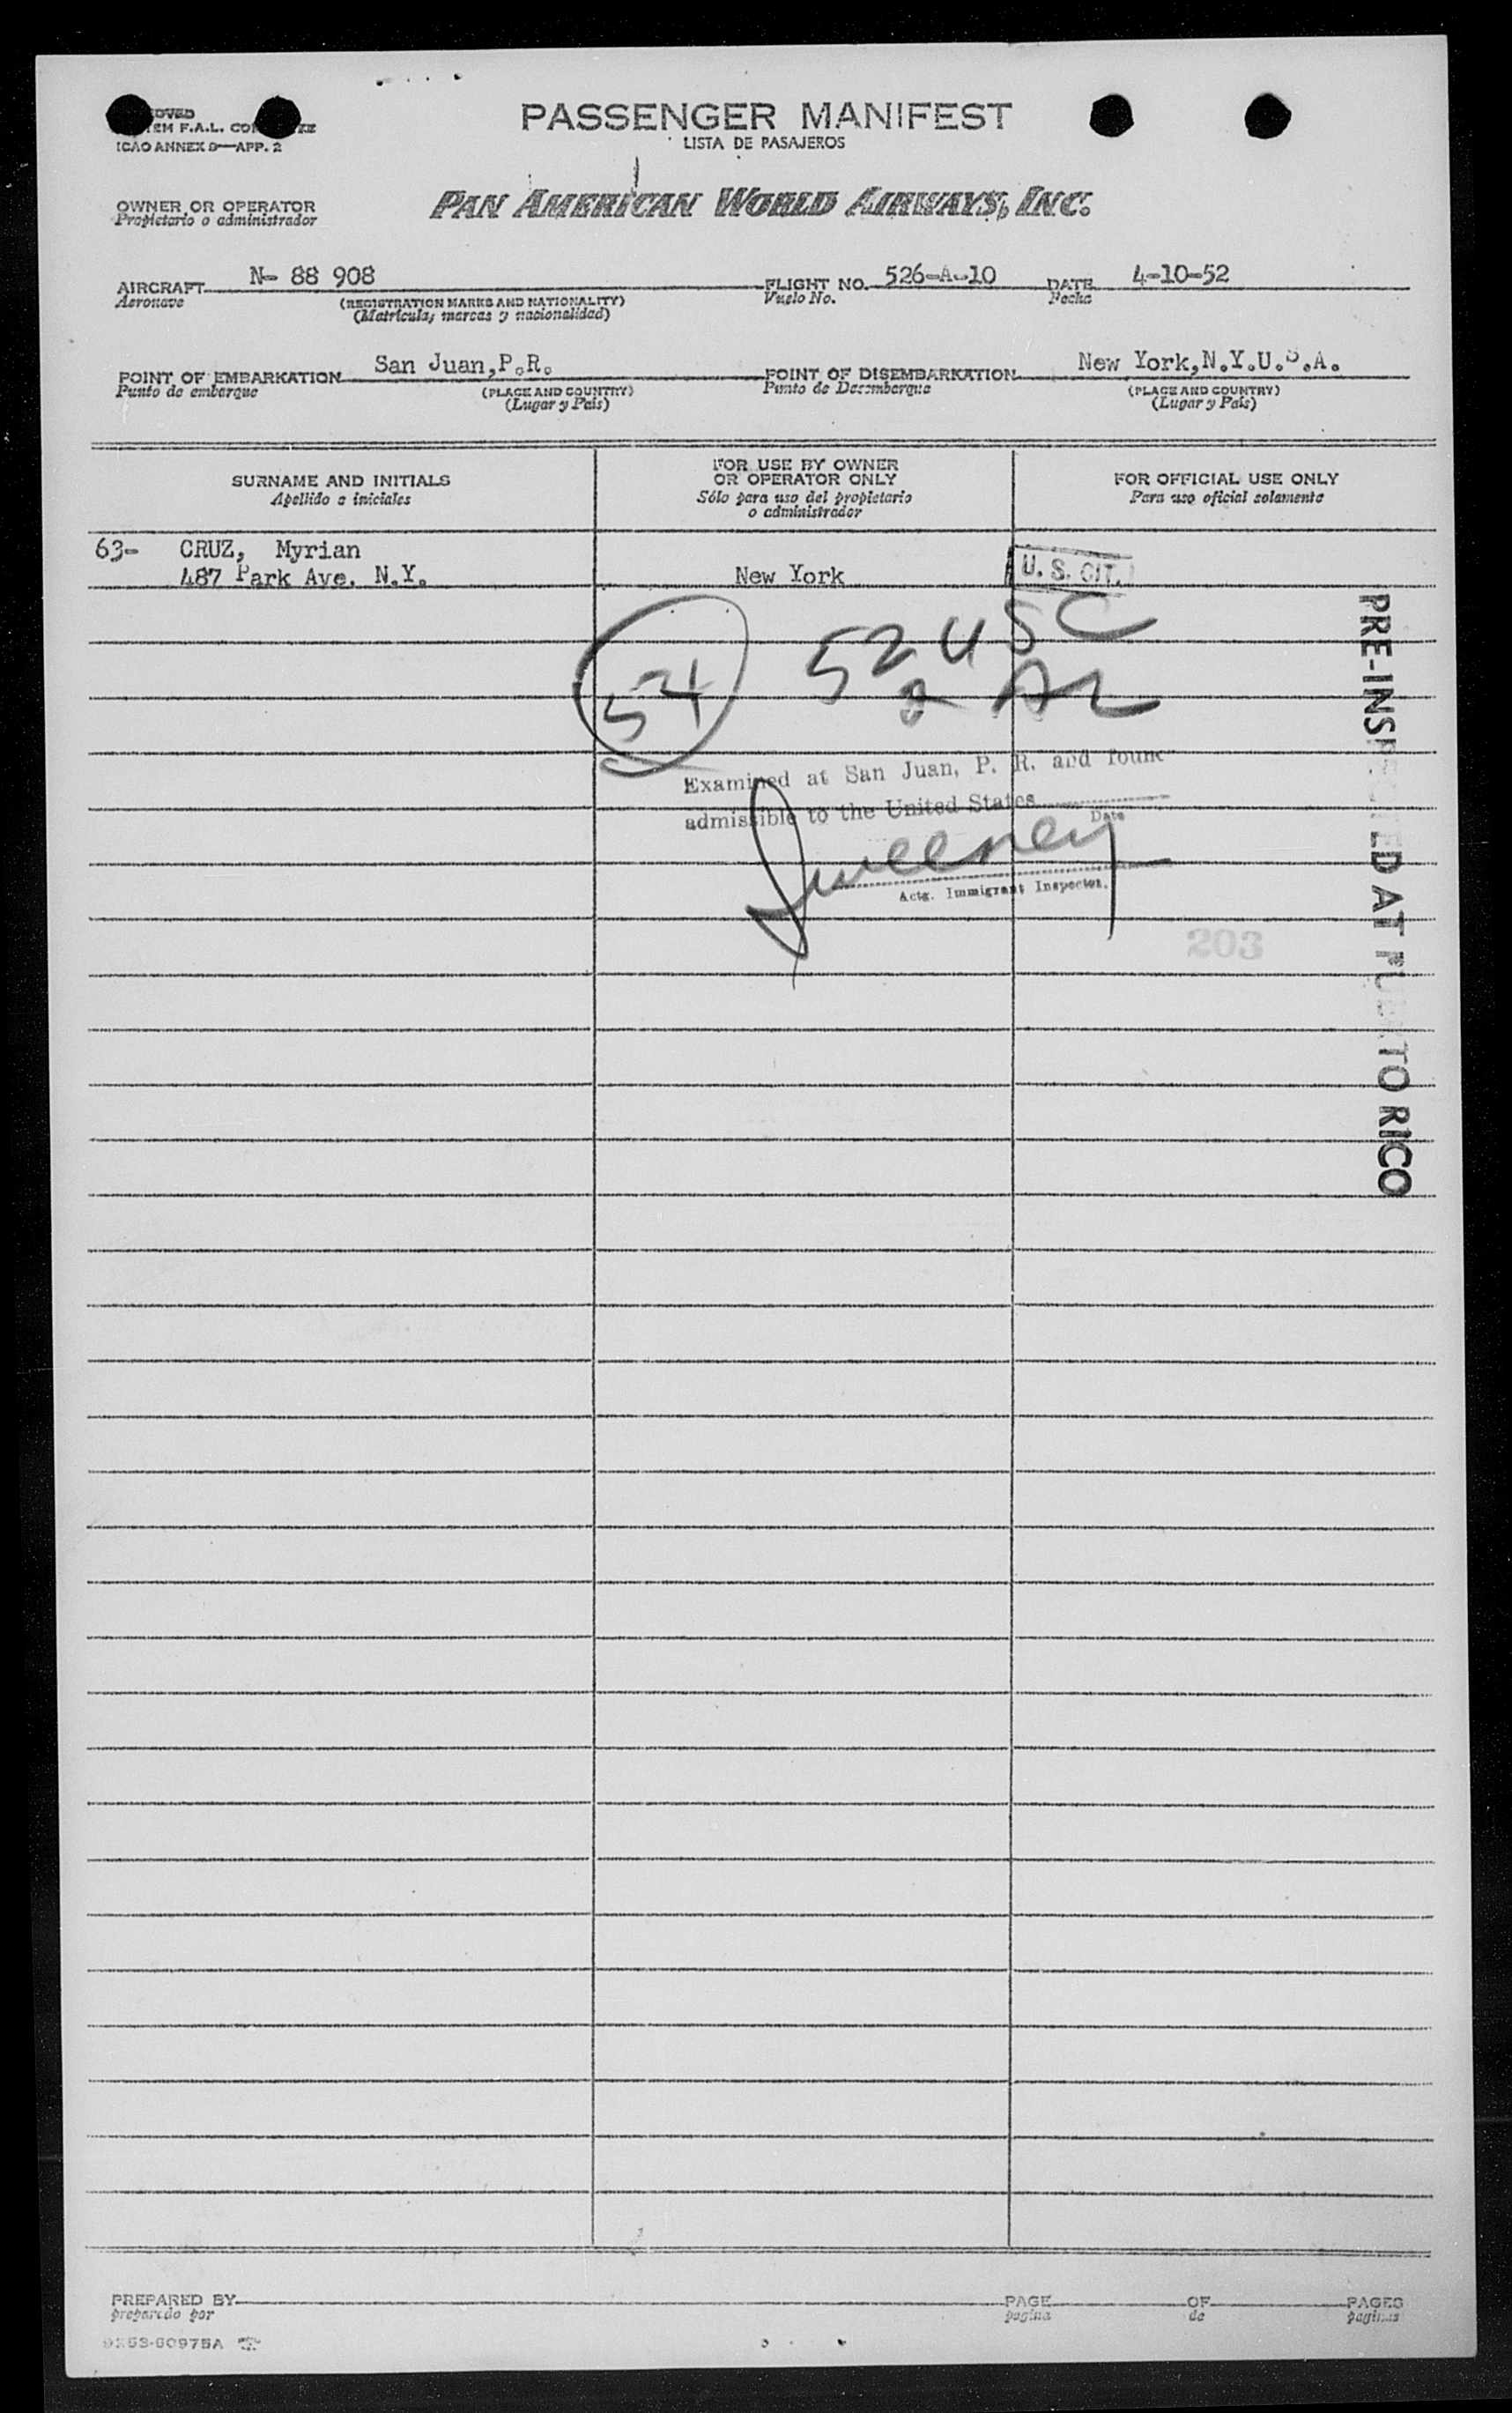 PASSENGER MANIFEST
LISTA DE PASAJEROS
F.A.L.
ICAO ANNEX 9—APP. 2
OWNER OR OPERATOR
Propietario o administrador
PAN AMERICAN WORLD AIRWAYS, INC.
AIRCRAFT N- 88 908 FLIGHT NO. 526-A-10 DATE 4-10-52
Aeronave (REGISTRATION MARKS AND NATIONALITY) Vuelo No. Fecha
(Matrícula, marcas y nacionalidad)
POINT OF EMBARKATION San Juan,P.R. POINT OF DISEMBARKATION New York,N.Y.U.S.A.
Punto de embarque (PLACE AND COUNTRY) Punto de Desembarque (PLACE AND COUNTRY)
(Lugar y País) (Lugar y País)
SURNAME AND INITIALS
Apellido e iniciales
FOR USE BY OWNER
OR OPERATOR ONLY
Sólo para uso del propietario
o administrador
FOR OFFICIAL USE ONLY
Para uso oficial solamente
63- CRUZ, Myrian
487 Park Ave. N.Y. New York U. S. CIT.
52 USC
54
2
Examined at San Juan, P. R. and found
admissible to the United States
Date
Sweeney
Actg. Immigrant Inspector.
203
PRE-INSPECTED AT PUERTO RICO
PREPARED BY PAGE OF PAGES
preparado por pagina de paginas